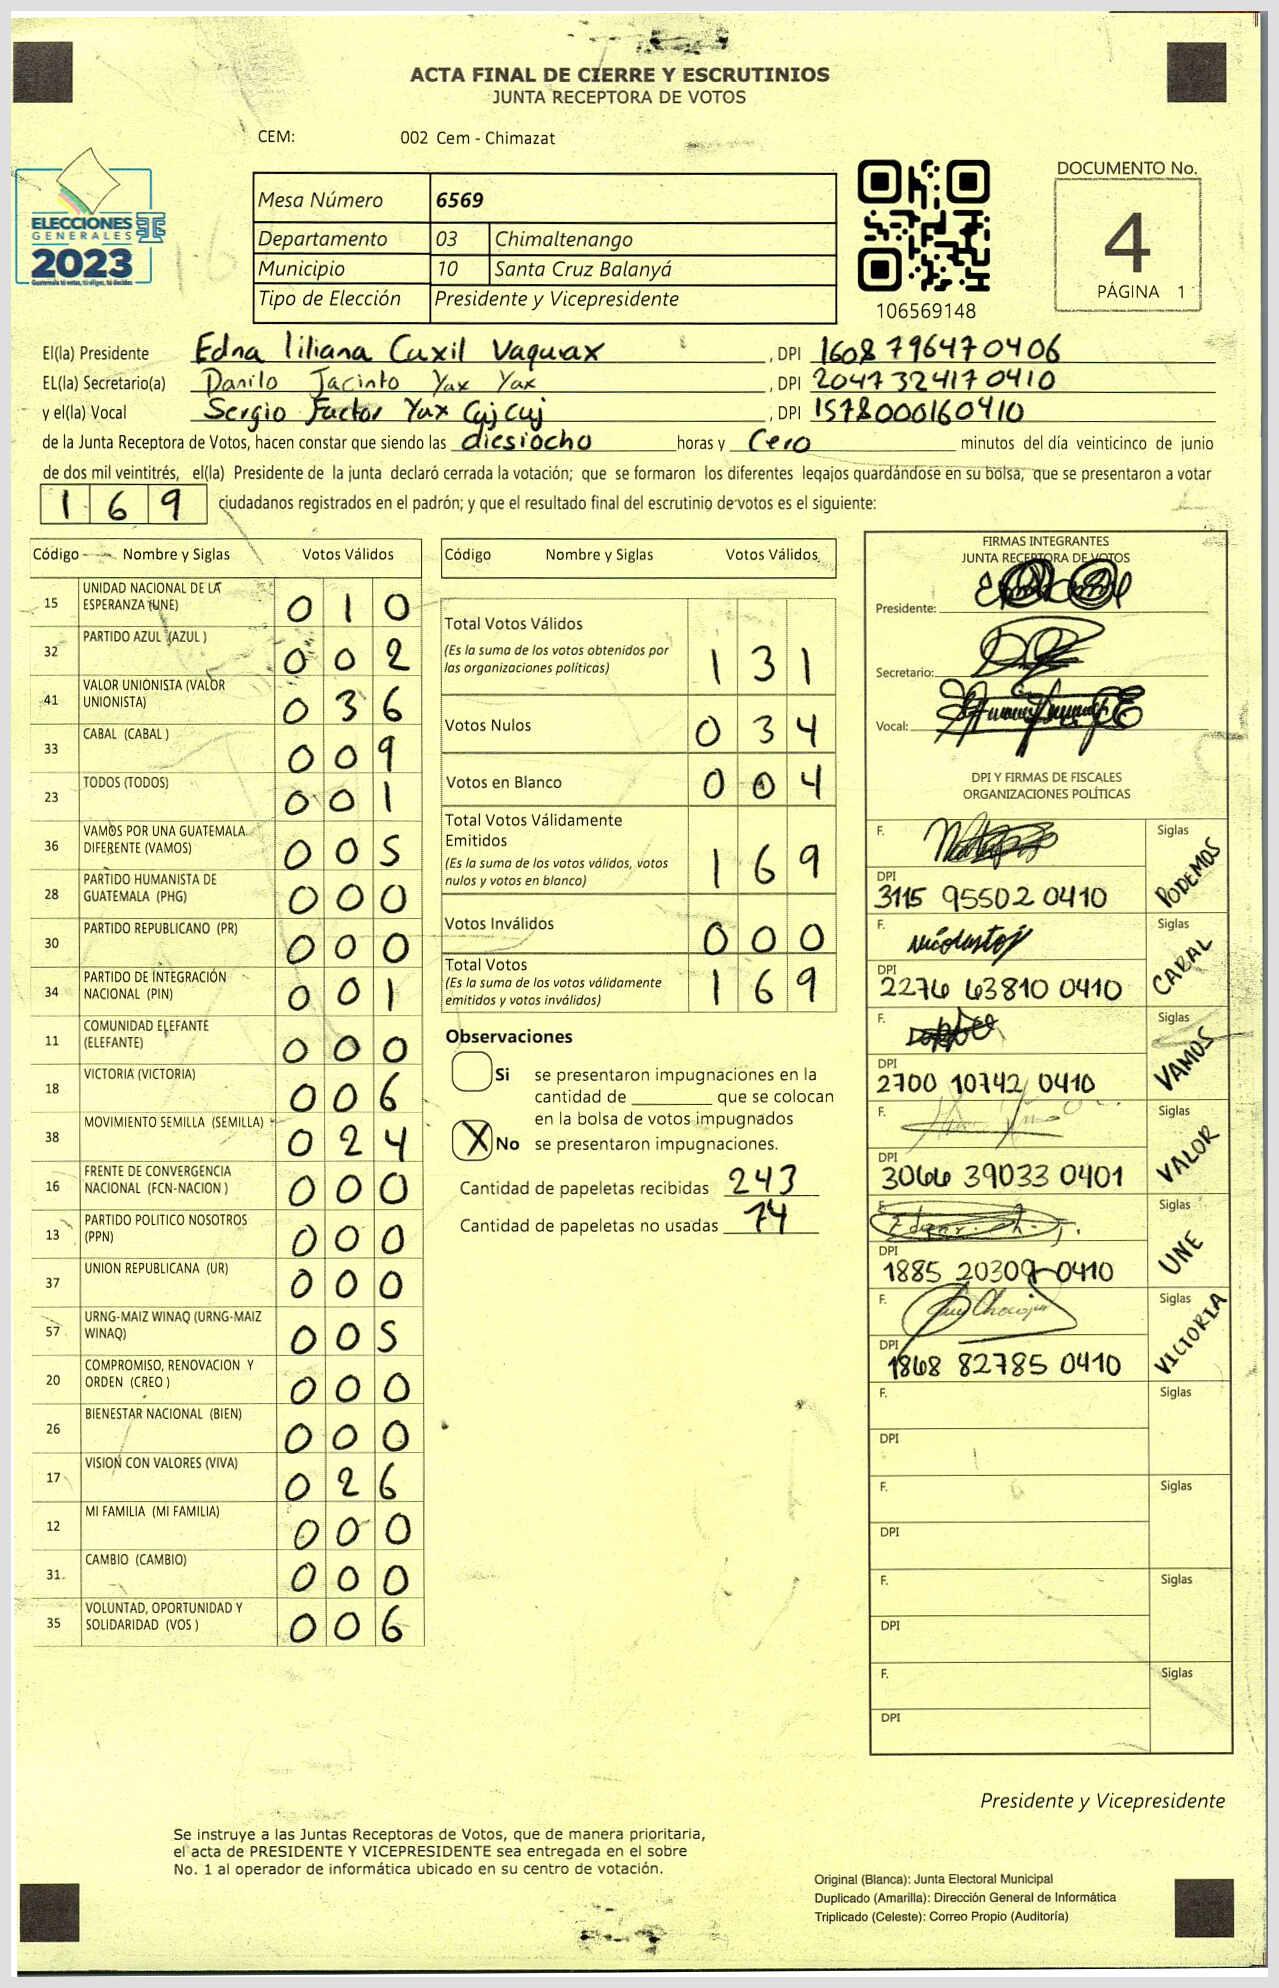 ACTA FINAL DE CIERRE Y ESCRUTINIOS
JUNTA RECEPTORA DE VOTOS
CEM: 002 Cem - Chimazat
ELECCIONES
GENERALES
2023
Guatemala tú votas, tú eliges, tú decides
Mesa Número 6569
Departamento 03 Chimaltenango
Municipio 10 Santa Cruz Balanyá
Tipo de Elección Presidente y Vicepresidente
106569148
DOCUMENTO No.
4
PÁGINA 1
El(la) Presidente Edna liliana Cuxil Vaquiax, DPI 1608796470406
EL(la) Secretario(a) Danilo Jacinto Yax Yax, DPI 2047324170410
y el(la) Vocal Sergio Factor Yax Cuj Cuj, DPI 1578000160410
de la Junta Receptora de Votos, hacen constar que siendo las diesiocho horas y Cero minutos del día veinticinco de junio
de dos mil veintitrés, el(la) Presidente de la junta declaró cerrada la votación; que se formaron los diferentes legajos guardándose en su bolsa, que se presentaron a votar
169 ciudadanos registrados en el padrón; y que el resultado final del escrutinio de votos es el siguiente:
Código Nombre y Siglas Votos Válidos
15 UNIDAD NACIONAL DE LA ESPERANZA (UNE) 010
32 PARTIDO AZUL (AZUL ) 002
41 VALOR UNIONISTA (VALOR UNIONISTA) 036
33 CABAL (CABAL ) 009
23 TODOS (TODOS) 001
36 VAMOS POR UNA GUATEMALA DIFERENTE (VAMOS) 005
28 PARTIDO HUMANISTA DE GUATEMALA (PHG) 000
30 PARTIDO REPUBLICANO (PR) 000
34 PARTIDO DE INTEGRACIÓN NACIONAL (PIN) 001
11 COMUNIDAD ELEFANTE (ELEFANTE) 000
18 VICTORIA (VICTORIA) 006
38 MOVIMIENTO SEMILLA (SEMILLA) 024
16 FRENTE DE CONVERGENCIA NACIONAL (FCN-NACION ) 000
13 PARTIDO POLITICO NOSOTROS (PPN) 000
37 UNION REPUBLICANA (UR) 000
57 URNG-MAIZ WINAQ (URNG-MAIZ WINAQ) 005
20 COMPROMISO, RENOVACION Y ORDEN (CREO ) 000
26 BIENESTAR NACIONAL (BIEN) 000
17 VISION CON VALORES (VIVA) 026
12 MI FAMILIA (MI FAMILIA) 000
31 CAMBIO (CAMBIO) 000
35 VOLUNTAD, OPORTUNIDAD Y SOLIDARIDAD (VOS ) 006
Código Nombre y Siglas Votos Válidos
Total Votos Válidos 131
(Es la suma de los votos obtenidos por
las organizaciones políticas)
Votos Nulos 034
Votos en Blanco 004
Total Votos Válidamente
Emitidos 169
(Es la suma de los votos válidos, votos
nulos y votos en blanco)
Votos Inválidos 000
Total Votos 169
(Es la suma de los votos válidamente
emitidos y votos inválidos)
Observaciones
Si se presentaron impugnaciones en la
cantidad de ________ que se colocan
en la bolsa de votos impugnados
X No se presentaron impugnaciones.
Cantidad de papeletas recibidas 243
Cantidad de papeletas no usadas 74
FIRMAS INTEGRANTES
JUNTA RECEPTORA DE VOTOS
Presidente:
Secretario:
Vocal:
DPI Y FIRMAS DE FISCALES
ORGANIZACIONES POLÍTICAS
F. Siglas PODEMOS
DPI 3115 95502 0410
F. Siglas CABAL
DPI 2276 63810 0410
F. Siglas VAMOS
DPI 2700 10742 0410
F. Siglas VALOR
DPI 3066 39033 0401
F. Siglas UNE
DPI 1885 20309 0410
F. Siglas VICTORIA
DPI 1868 82785 0410
F. Siglas
DPI
F. Siglas
DPI
F. Siglas
DPI
F. Siglas
DPI
Presidente y Vicepresidente
Se instruye a las Juntas Receptoras de Votos, que de manera prioritaria,
el acta de PRESIDENTE Y VICEPRESIDENTE sea entregada en el sobre
No. 1 al operador de informática ubicado en su centro de votación.
Original (Blanca): Junta Electoral Municipal
Duplicado (Amarilla): Dirección General de Informática
Triplicado (Celeste): Correo Propio (Auditoría)